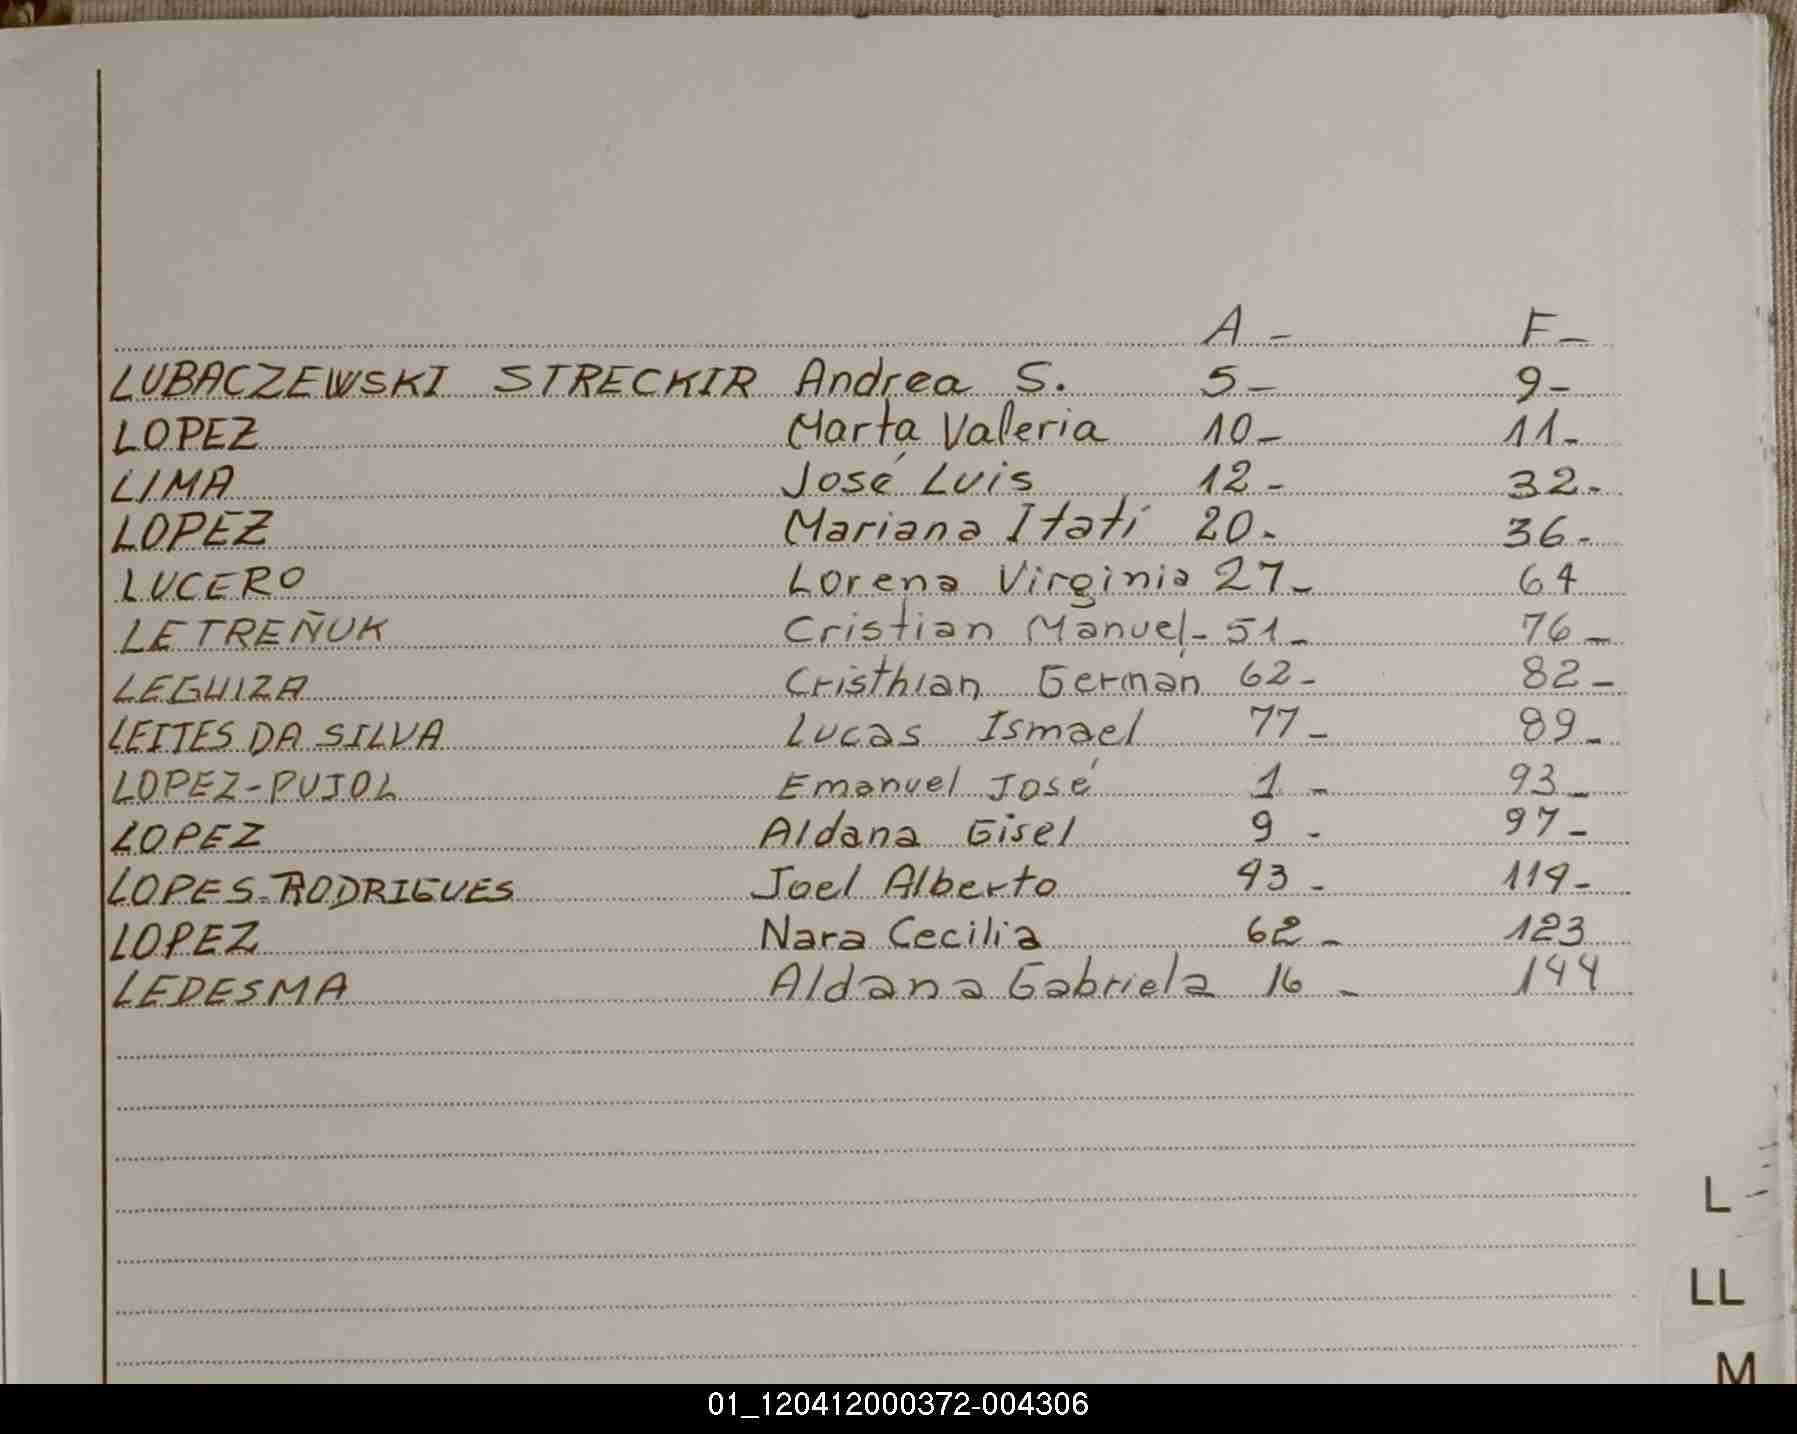 A - F -
LUBACZEWSKI STRECKIR Andrea S. 5 - 9 -
LOPEZ Marta Valeria 10 - 11 -
LIMA José Luis 12 - 32 -
LOPEZ Mariana Itatí 20 - 36 -
LUCERO Lorena Virginia 27 - 64
LETREÑUK Cristian Manuel - 51 - 76 -
LEGUIZA Cristhian Germán 62 - 82 -
LEITES DA SILVA Lucas Ismael 77 - 89 -
LOPEZ-PUJOL Emanuel José 1 - 93 -
LOPEZ Aldana Gisel 9 - 97 -
LOPES-RODRIGUES Joel Alberto 43 - 114 -
LOPEZ Nara Cecilia 62 - 123
LEDESMA Aldana Gabriela 16 - 144
L
LL
M
01_120412000372-004306